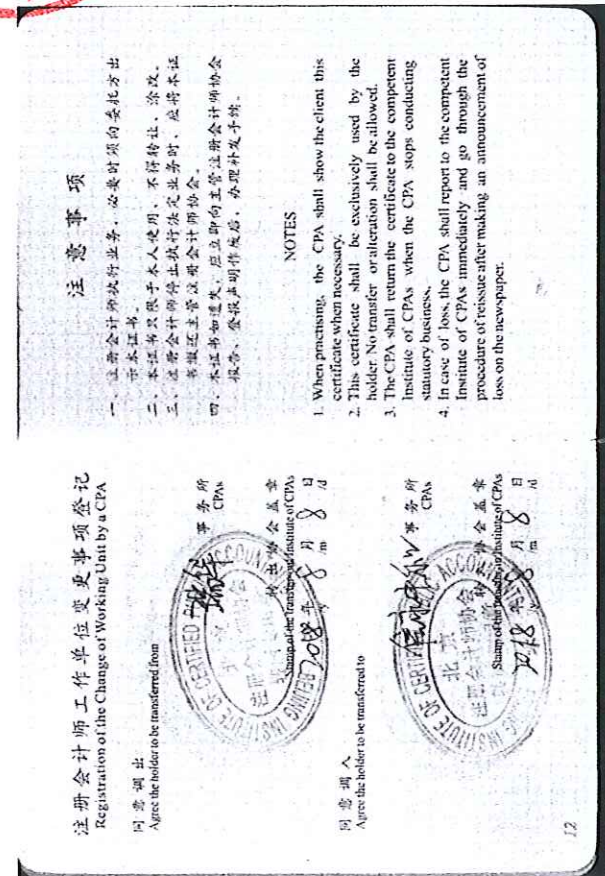 注册会计师工作单位变更事项登记
Registration of the Change of Working Unit by a CPA
同意调出
Agree the holder to be transferred from
瑞华
事务所
CPAs
转出协会盖章
Stamp of the Transfer-out Institute of CPAs
2018年8月8日
/y /m /d
BEIJING INSTITUTE OF CERTIFIED ACCOUNTANTS
北京
注册会计师协会
同意调入
Agree the holder to be transferred to
事务所
CPAs
转入协会盖章
Stamp of the Transfer-in Institute of CPAs
2018年8月8日
/y /m /d
INSTITUTE OF CERTIFIED
北京
注册会计师协会
12
注意事项
一、注册会计师执行业务，必要时须向委托方出
示本证书。
二、本证书只限于本人使用，不得转让、涂改。
三、注册会计师停止执行法定业务时，应将本证
书缴还主管注册会计师协会。
四、本证书如遗失，应立即向主管注册会计师协会
报告，登报声明作废后，办理补发手续。
NOTES
1. When practising, the CPA shall show the client this
certificate when necessary.
2. This certificate shall be exclusively used by the
holder. No transfer or alteration shall be allowed.
3. The CPA shall return the certificate to the competent
Institute of CPAs when the CPA stops conducting
statutory business.
4. In case of loss, the CPA shall report to the competent
Institute of CPAs immediately and go through the
procedure of reissue after making an announcement of
loss on the newspaper.